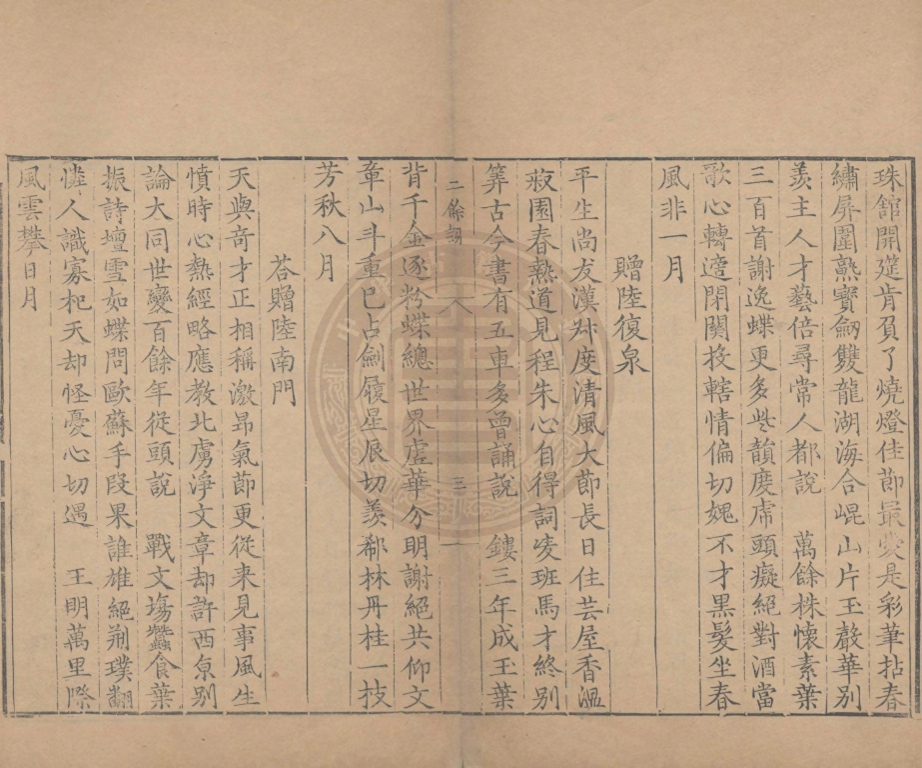 珠館開筵肯負了燒燈佳節最愛是彩華拈春
繡屏圍熟寶劒雙龍湖海合崐山片玉聲華別
羨主人才藝倍尋常人都說　萬餘株懷素葉
三百首謝逸蝶更多些韻度虎頭癡絕對酒當
歌心轉遽閉關投轄情偏切媿不才黑髮坐春
風非一月
贈陸復泉
平生尚友漢叔度清風大節長日住芸屋香溫
菽園春熱道見程朱心自得詞凌班馬才終別
筭古今書有五車多曾誦說　鏤三年成玉葉
二餘詞　八　三
背千金逐粉蝶總世界虛華分明謝絕共仰文
章山斗重已占劍履星辰切羨郗林丹桂一枝
芳秋八月
荅贈陸南門
天與奇才正相稱激昂氣節更從來見事風生
憤時心熱經略應教北虜淨文章却許西京別
論大同世變百餘年從頭說　戰文塲蠶食葉
振詩壇雪如蝶問歐蘇手段果誰雄絕荊璞翻
憐人識寡杞天却怪憂心切遇　王明萬里際
風雲攀日月